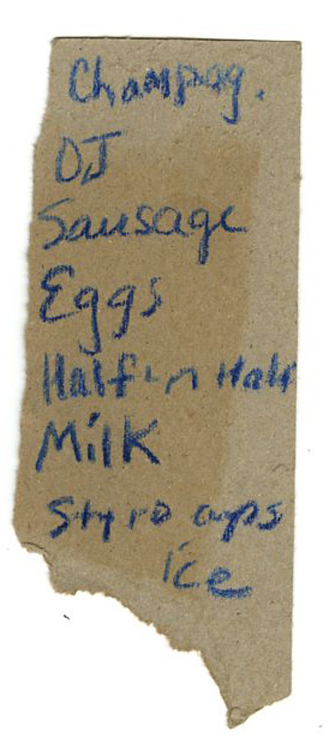 Champag.
OJ
Sausage
Eggs
Half-n Half
Milk
Styro cups
ice